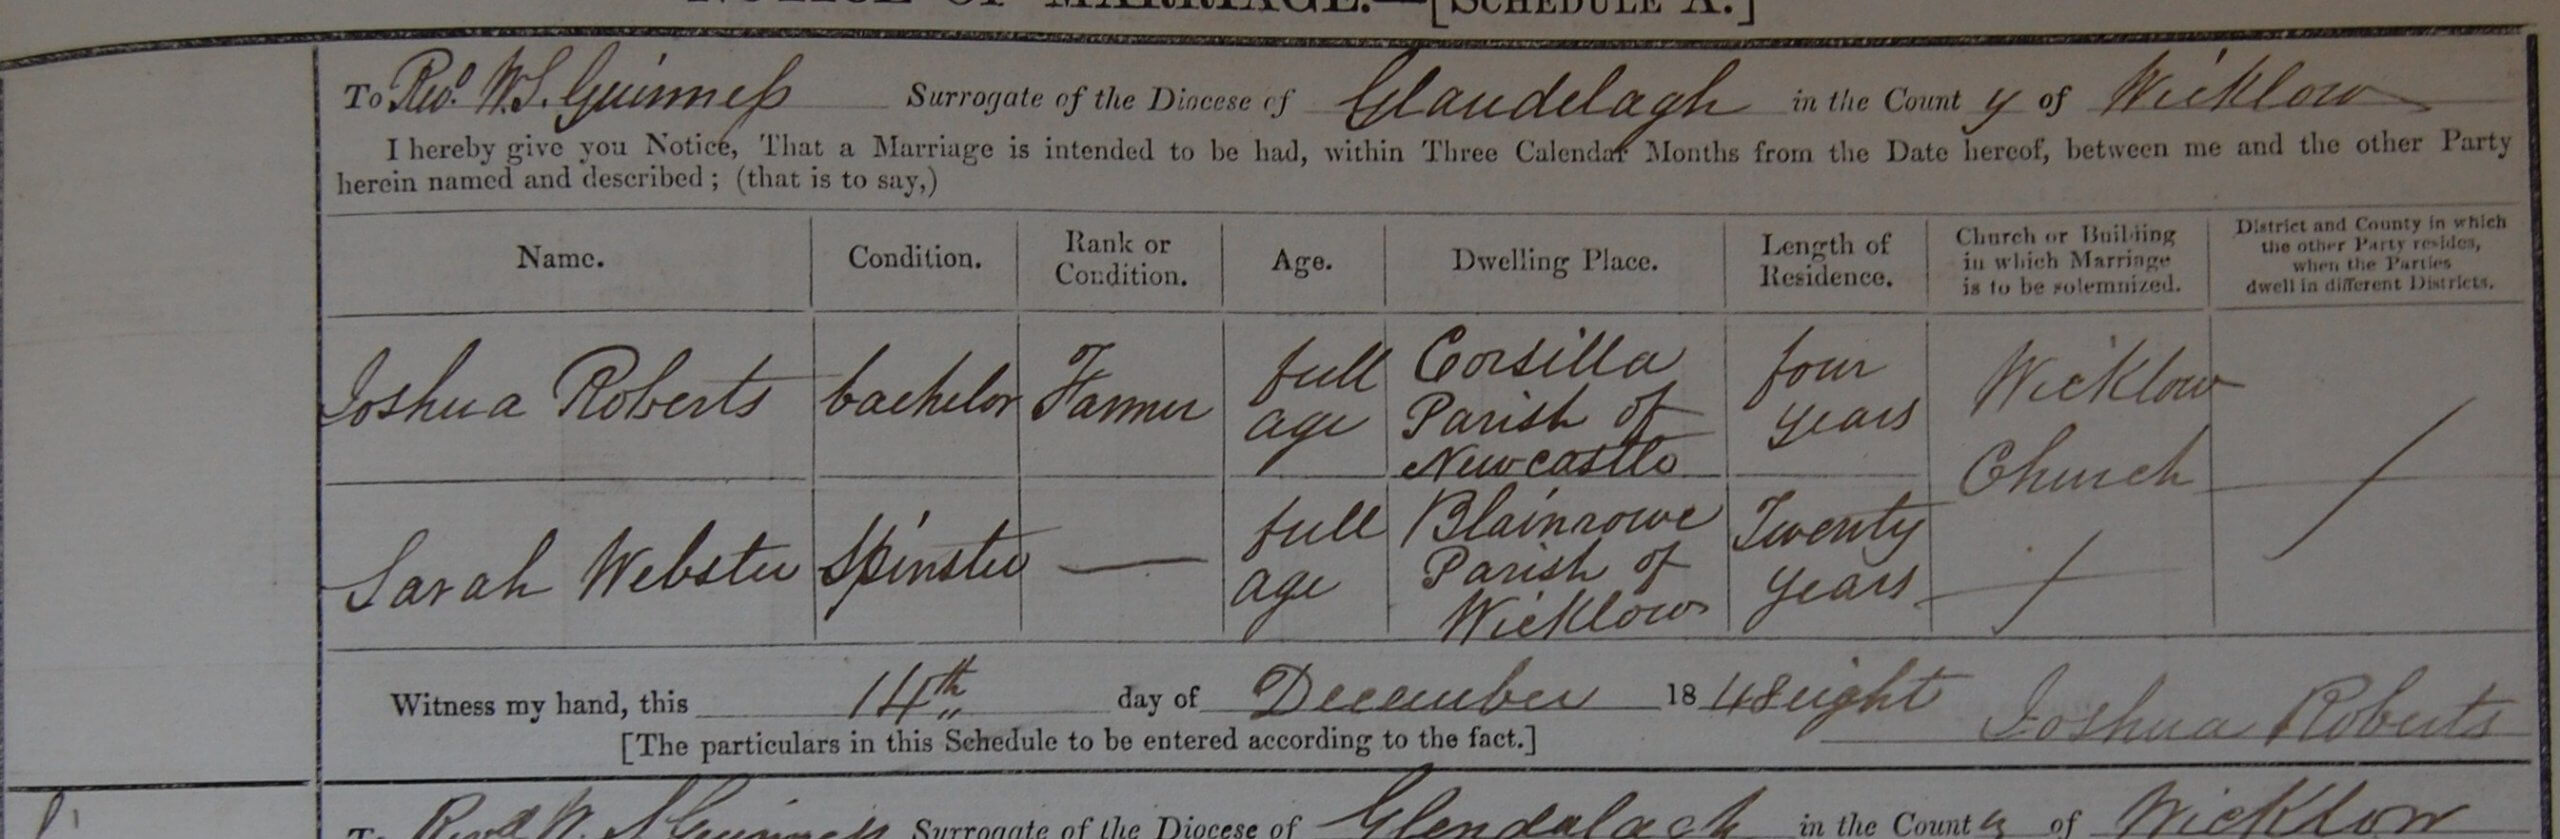 NOTICE OF MARRIAGE.—[SCHEDULE A.]
To Revd. W.S. Guinness Surrogate of the Diocese of Glandelagh in the County of Wicklow
I hereby give you Notice, That a Marriage is intended to be had, within Three Calendar Months from the Date hereof, between me and the other Party
herein named and described; (that is to say,)
Name. Condition. Rank or Condition. Age. Dwelling Place. Length of Residence. Church or Building in which Marriage is to be solemnized. District and County in which the other Party resides, when the Parties dwell in different Districts.
Joshua Roberts bachelor Farmer full age Corsilla Parish of Newcastle four years Wicklow Church
Sarah Webster Spinster — full age Blainrowe Parish of Wicklow Twenty years
Witness my hand, this 14th day of December 1848eight Joshua Roberts
[The particulars in this Schedule to be entered according to the fact.]
To Revd W. S Guinness Surrogate of the Diocese of Glendalach in the County of Wicklow